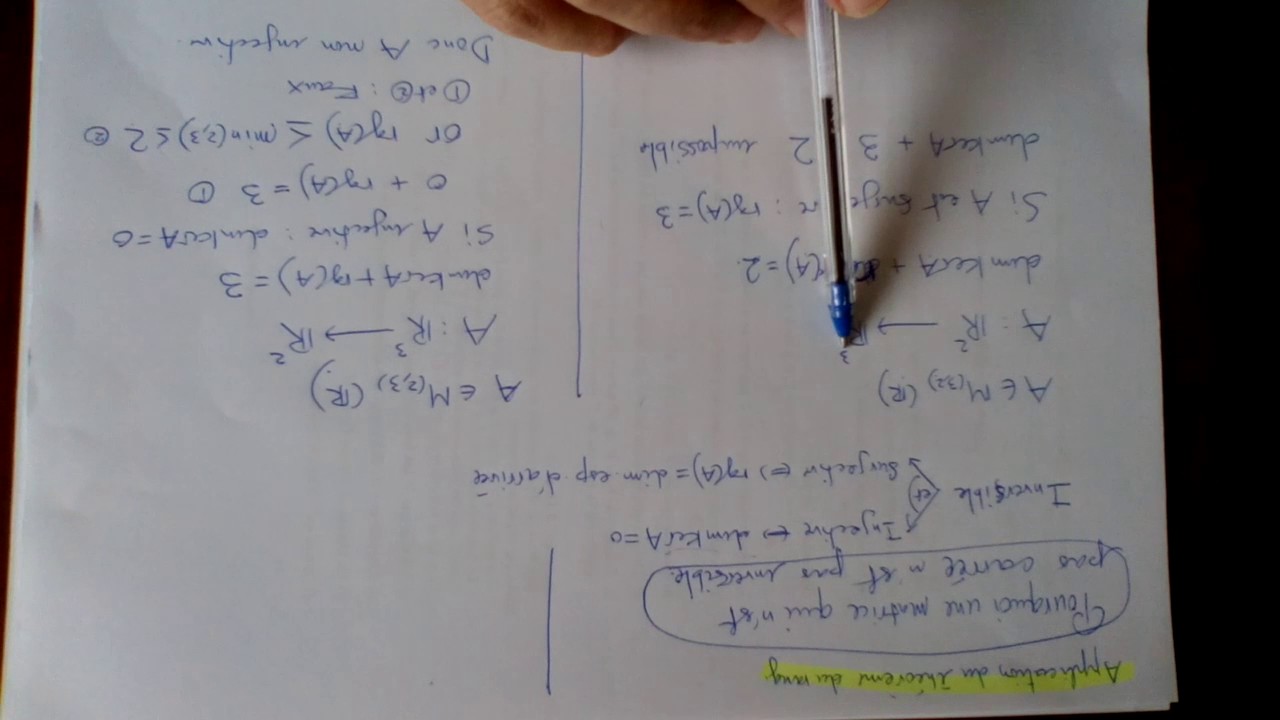 Application du théorème du rang
Pourquoi une matrice qui n'est
pas carrée n'est pas inversible.
Inversible
Injective ⇔ dim ker A = 0
et
Surjective ⇔ rg(A) = dim esp d'arrivée
A ∈ M(3,2) (ℝ)
A : ℝ² → ℝ³
dim ker A + rg(A) = 2
Si A est surjective : rg(A) = 3
dim ker A + 3 2 impossible
A ∈ M(2,3) (ℝ)
A : ℝ³ → ℝ²
dim ker A + rg(A) = 3
Si A injective : dim ker A = 0
0 + rg(A) = 3 ①
or rg(A) ≤ min(2,3) ≤ 2 ②
① et ② : Faux
Donc A non injective.